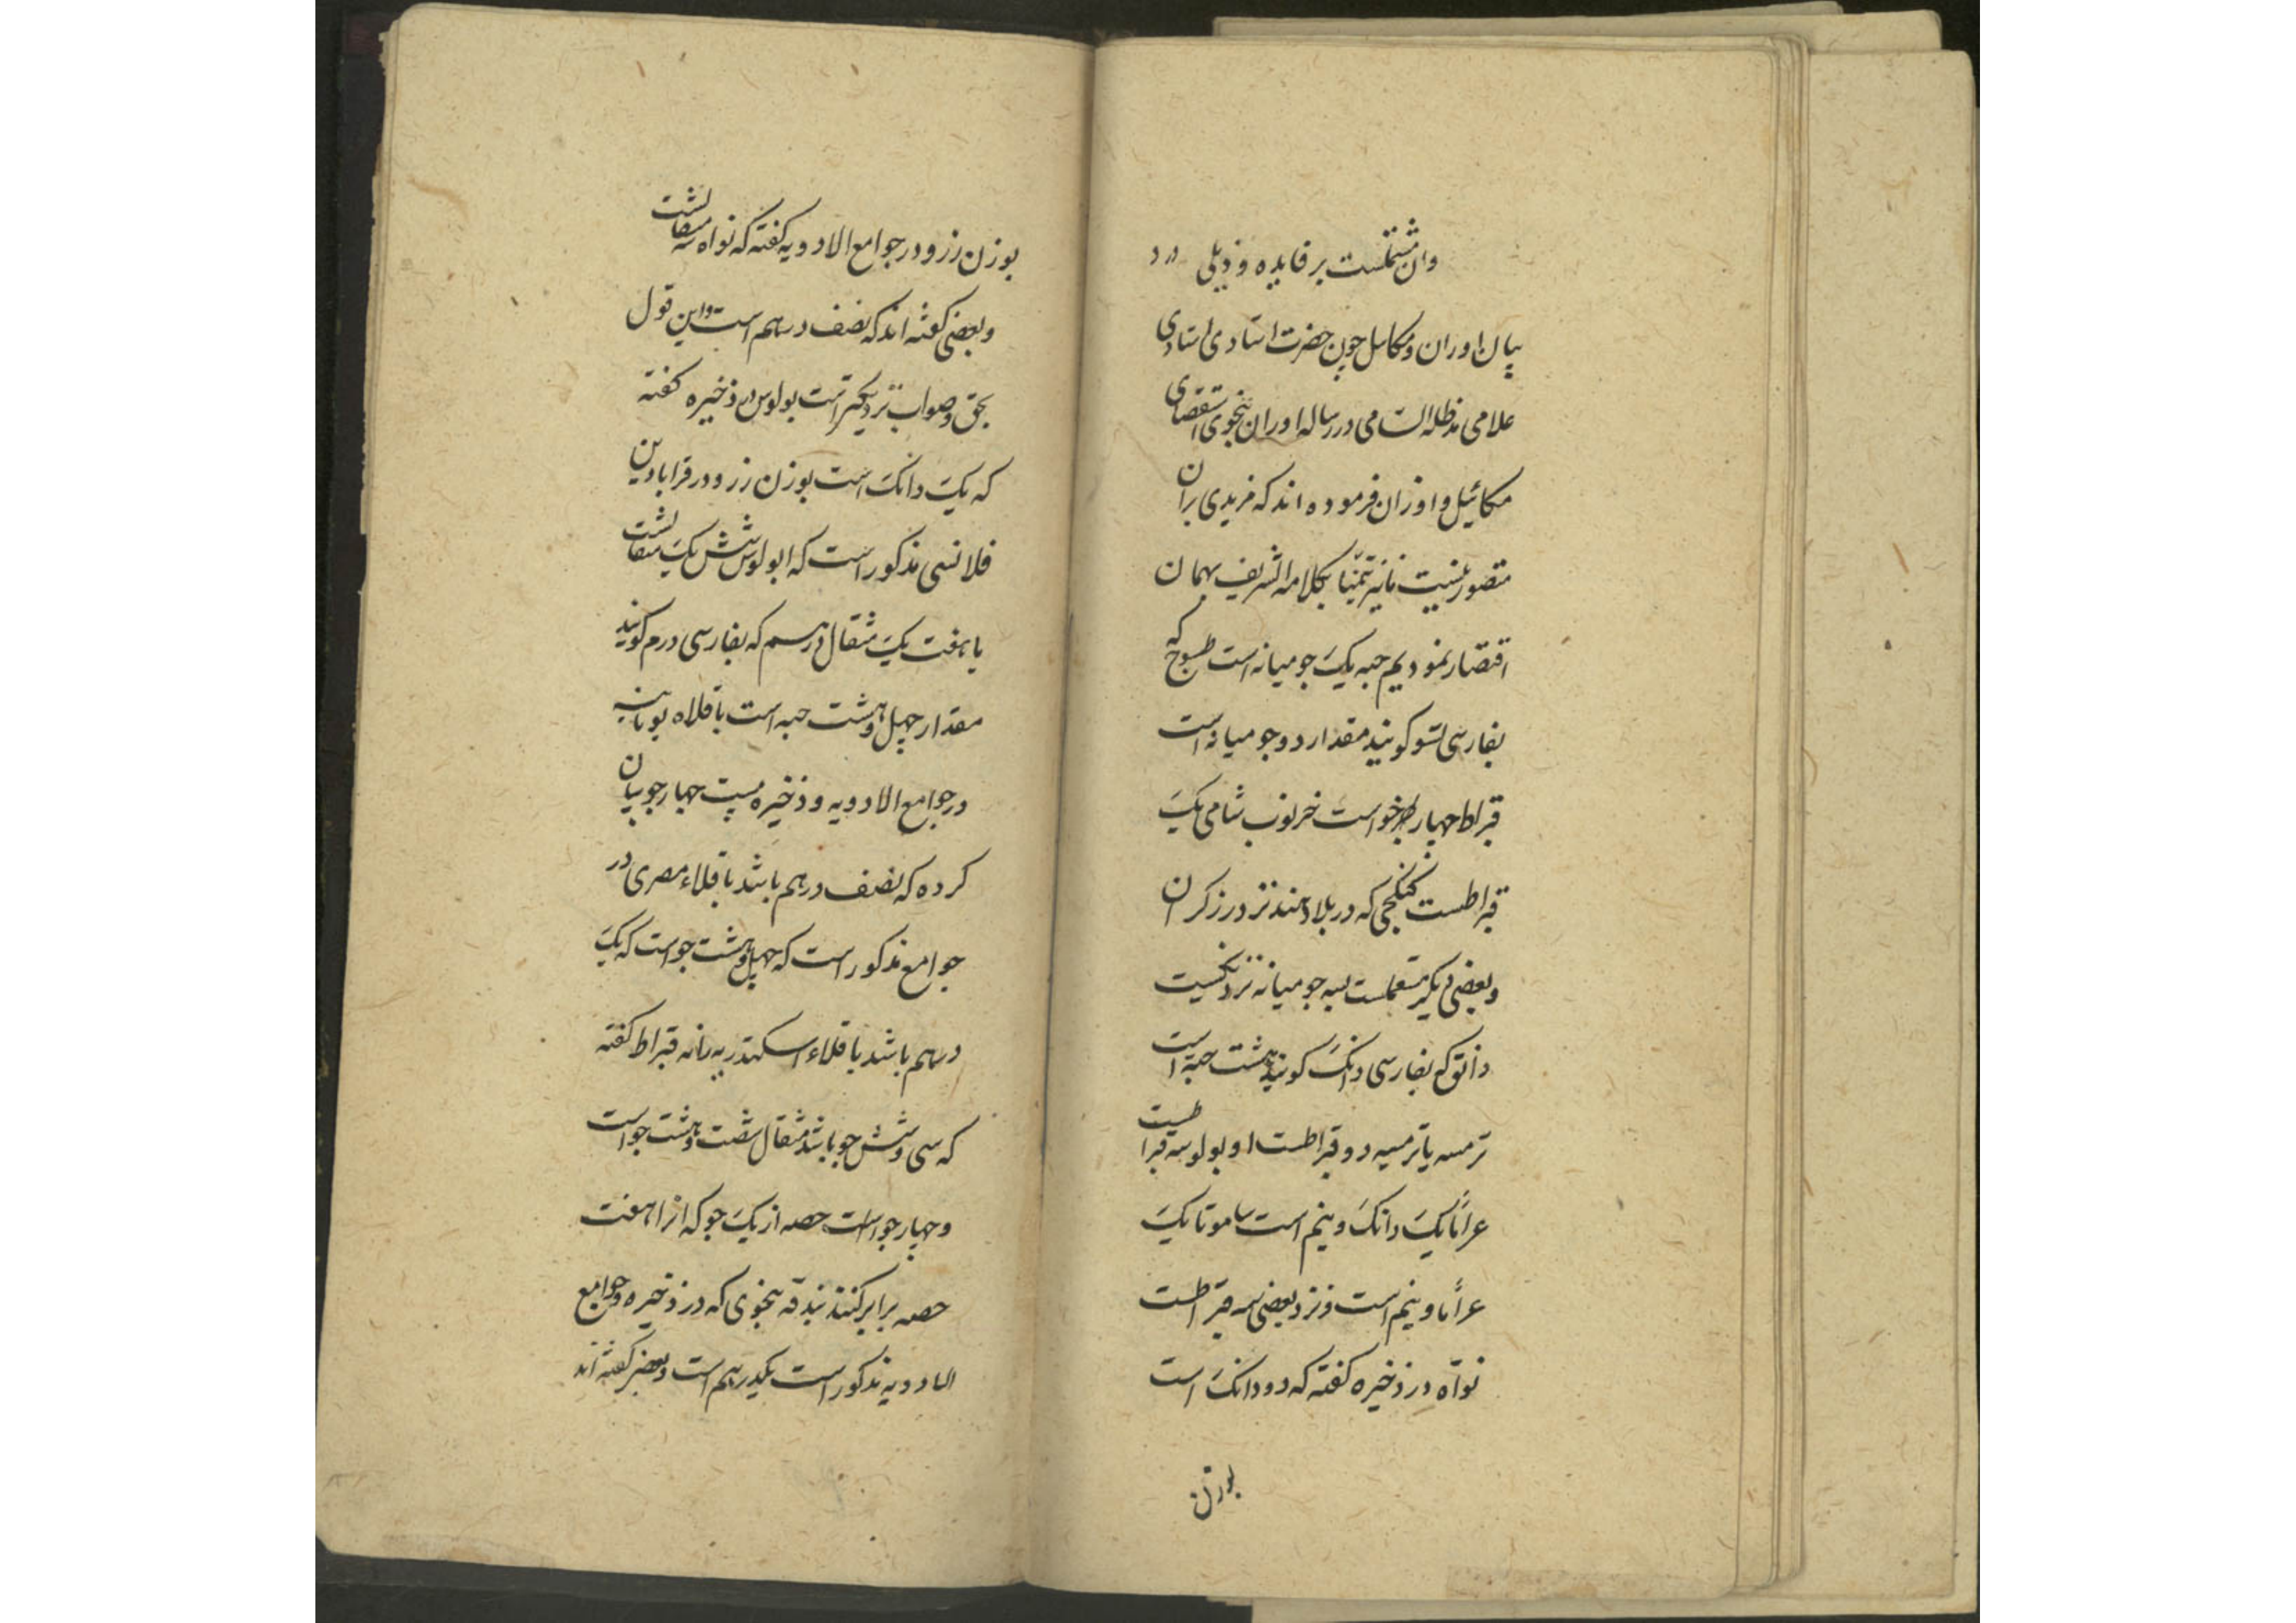 وان مشتملست بر فایده و ذیلی در
بیان اوران و مکاسل چون حضرت استادی استادی
علامی مدظله السامی در رساله اوران بنحوی استقصای
مکائیل و اوزان فرموده اند که مزیدی بران
متصور نیست تیمنا بکلامه الشریف بهمان
اقتصار نمودیم حبه یک جو میانه است طسوج که
بفارسی تسو کویند مقدار دو جو میانه است
قیراط چهار جو است خرنوب شامی یک
قیراطست که در بلاد هند نزد زرکران
و بعضی دیگر مستعملست بسه جو میانه نزدیکست
دانق که بفارسی دانک کویند هشت حبه است
ترمسه یا ترمسیه دو قیراطست اوبولو سه قیراطست
عراما یک دانک و نیم است ساموتا یک
عراما و نیم است و نزد بعضی سه قیراطست
نواه در ذخیره کفته که دو دانک است
بوزن
بوزن زر و در جوامع الادویه کفته که نواه سه مثقالست
و بعضی کفته اند که نصف درهم است و این قول
بحق و صواب نزدیکتر است بولوس در ذخیره کفته
که یک دانک است بوزن زر و در قرابادین
قلانسی مذکور است که ابولوس شش یک مثقالست
یا هفت یک مثقال درهم که بفارسی درم کویند
مقدار چهل و هشت حبه است باقلاه یونانیه
در جوامع الادویه و ذخیره بیست چهار جو بیان
کرده که نصف درهم باشد باقلاء مصری در
جوامع مذکور است که چهل و هشت جو است که یک
درهم باشد باقلاء اسکندریه نانه قیراط کفته
که سی و شش جو باشد مثقال شصت و هشت جو است
و چهار جو است حصه از یک جو که انرا هفت
حصه برابر کنند بندقه بنحوی که در ذخیره و جوامع
الادویه مذکور است یکدرهم است و بعضی کفته اند